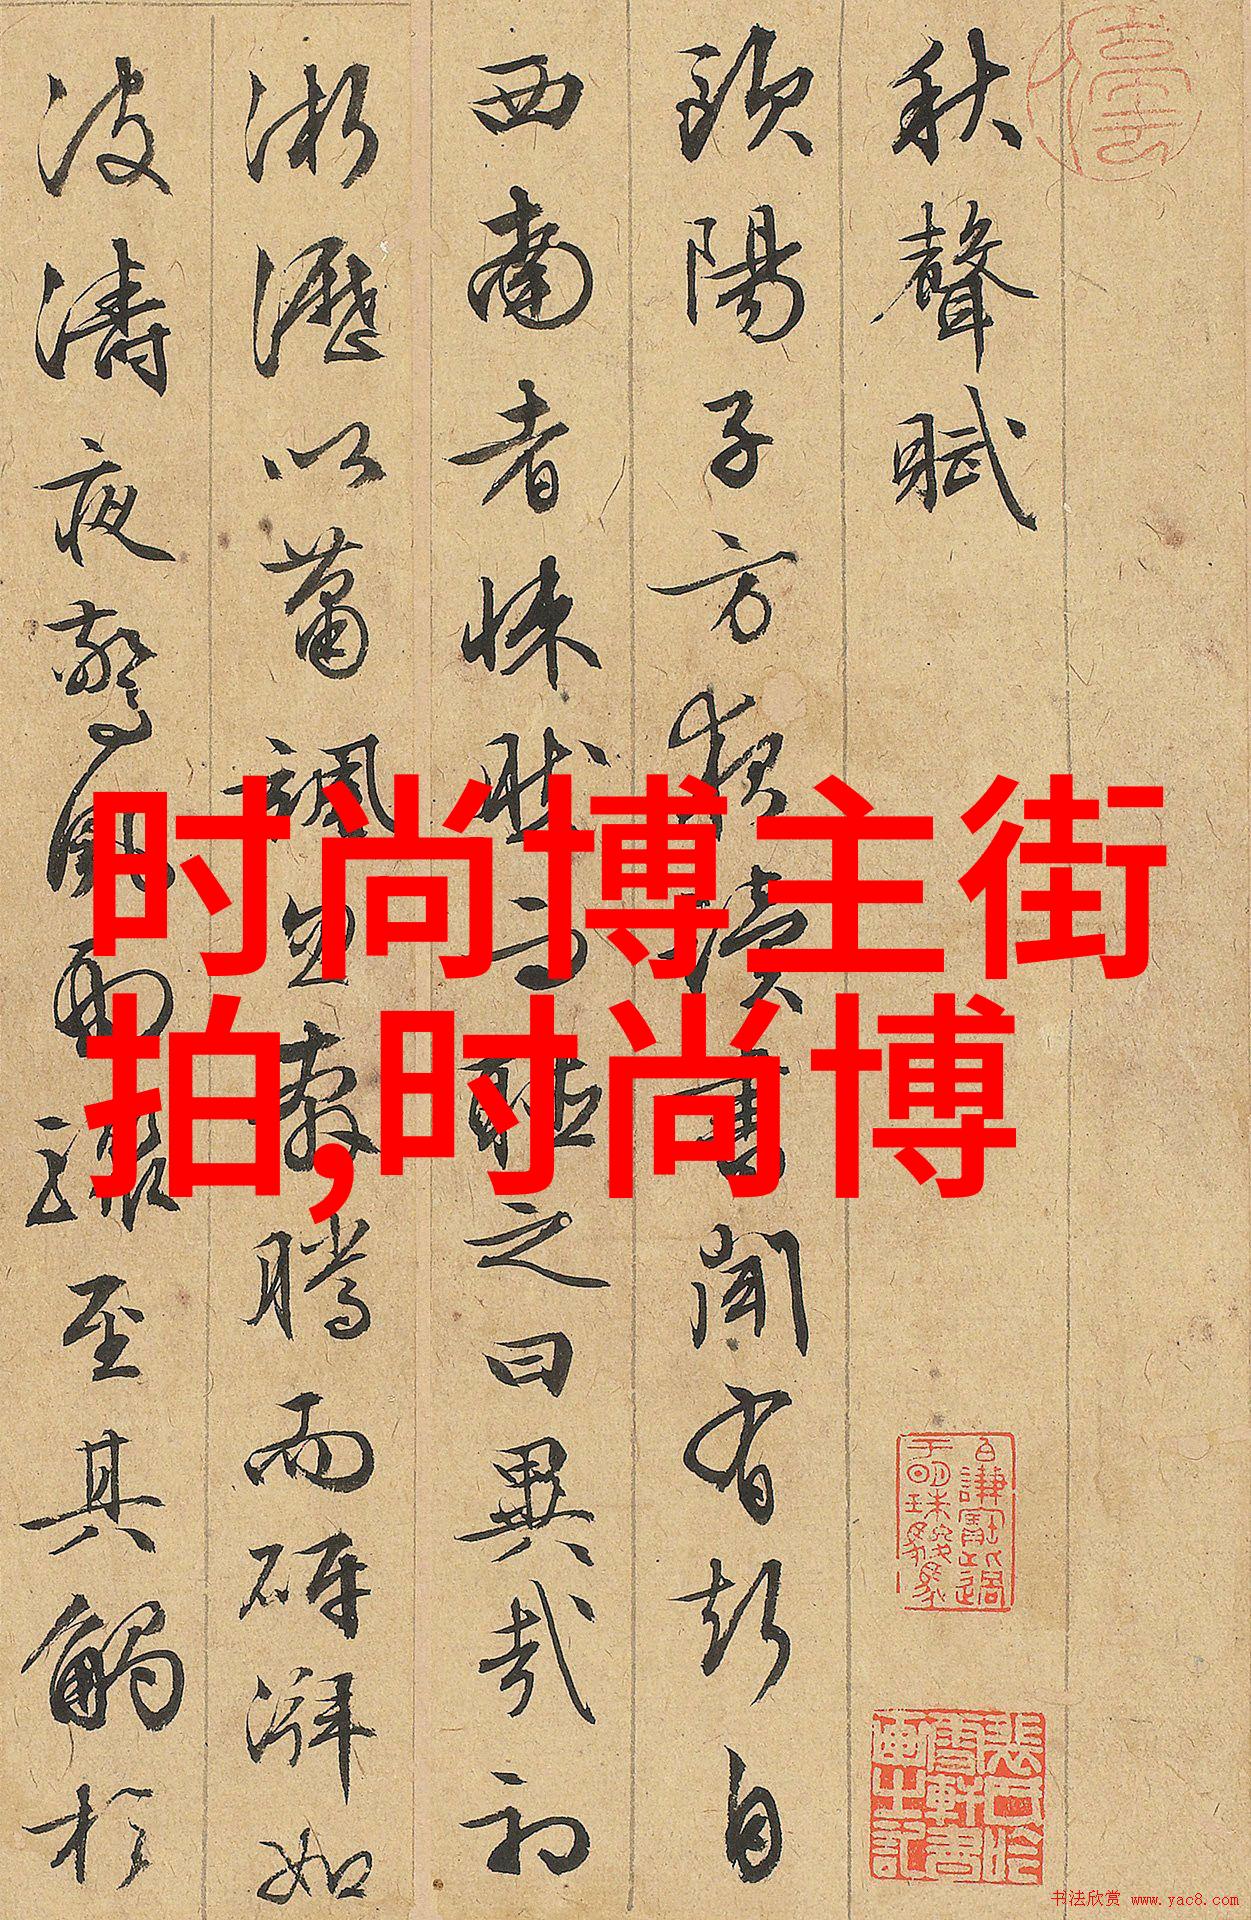 秋聲賦
歐陽子方夜讀書聞有聲自
西南者悚然而聽之曰異哉初
淅瀝以蕭颯忽奔騰而砰湃如
波濤夜驚風雨驟至其觸於
时尚博主街
拍,时尚博
书法欣赏 www.yac8.com